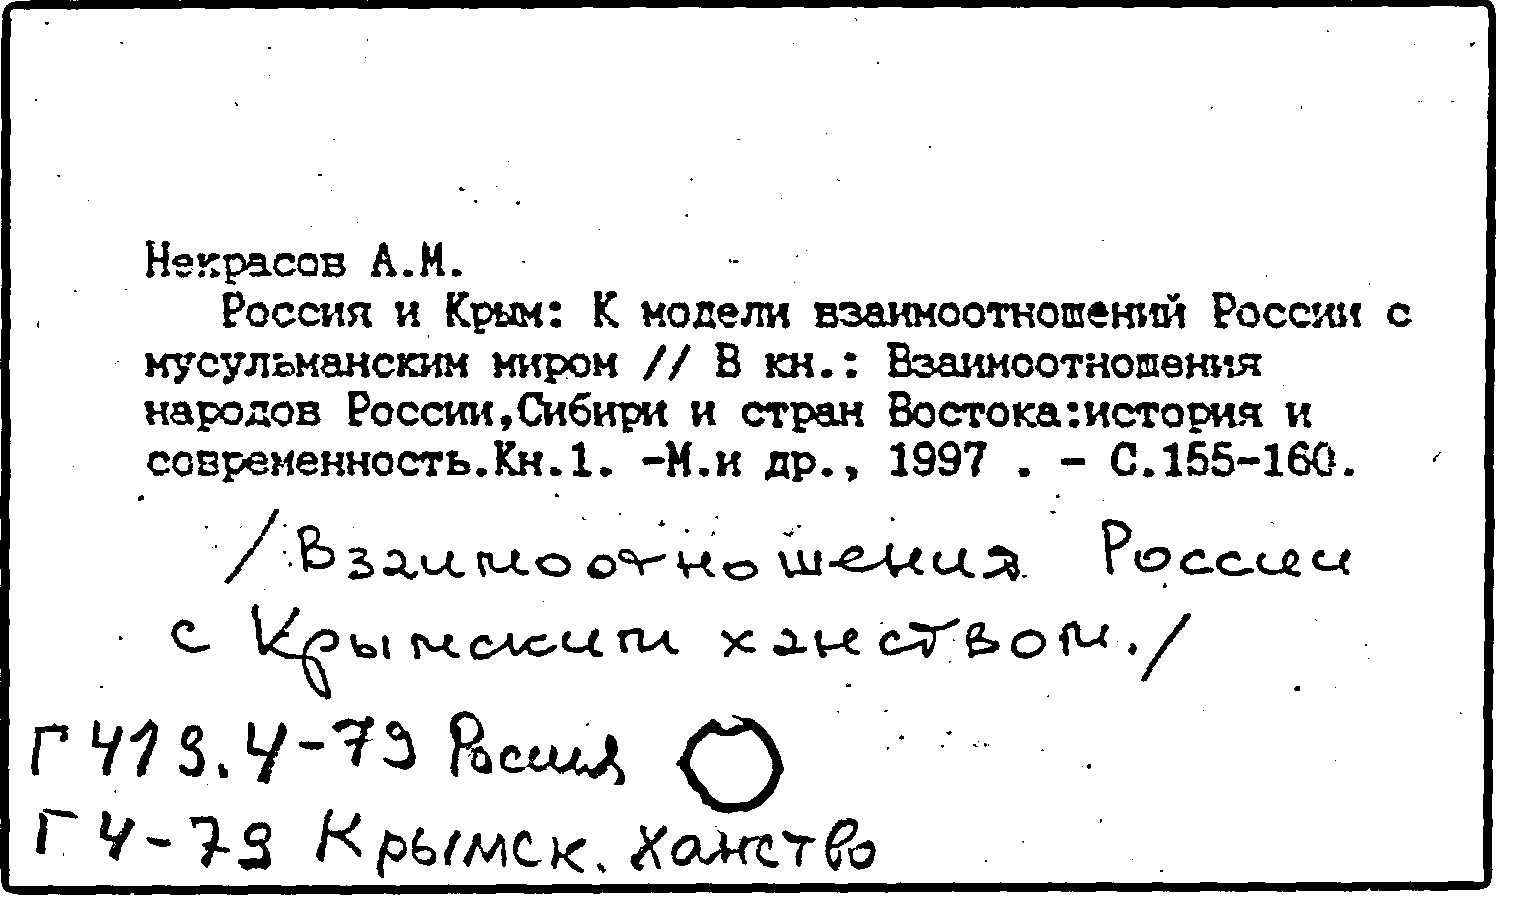 Некрасов А.М.
Россия и Крым: К модели взаимоотношений России с
мусульманским миром // В кн.: Взаимоотношения
народов России,Сибири и стран Востока:история и
современность.Кн.1. -М.и др., 1997 . - С.155-160.
/Взаимоотношения России
с Крымским ханством./
Г 419.4-79 Россия
Г 4-79 Крымск. ханство